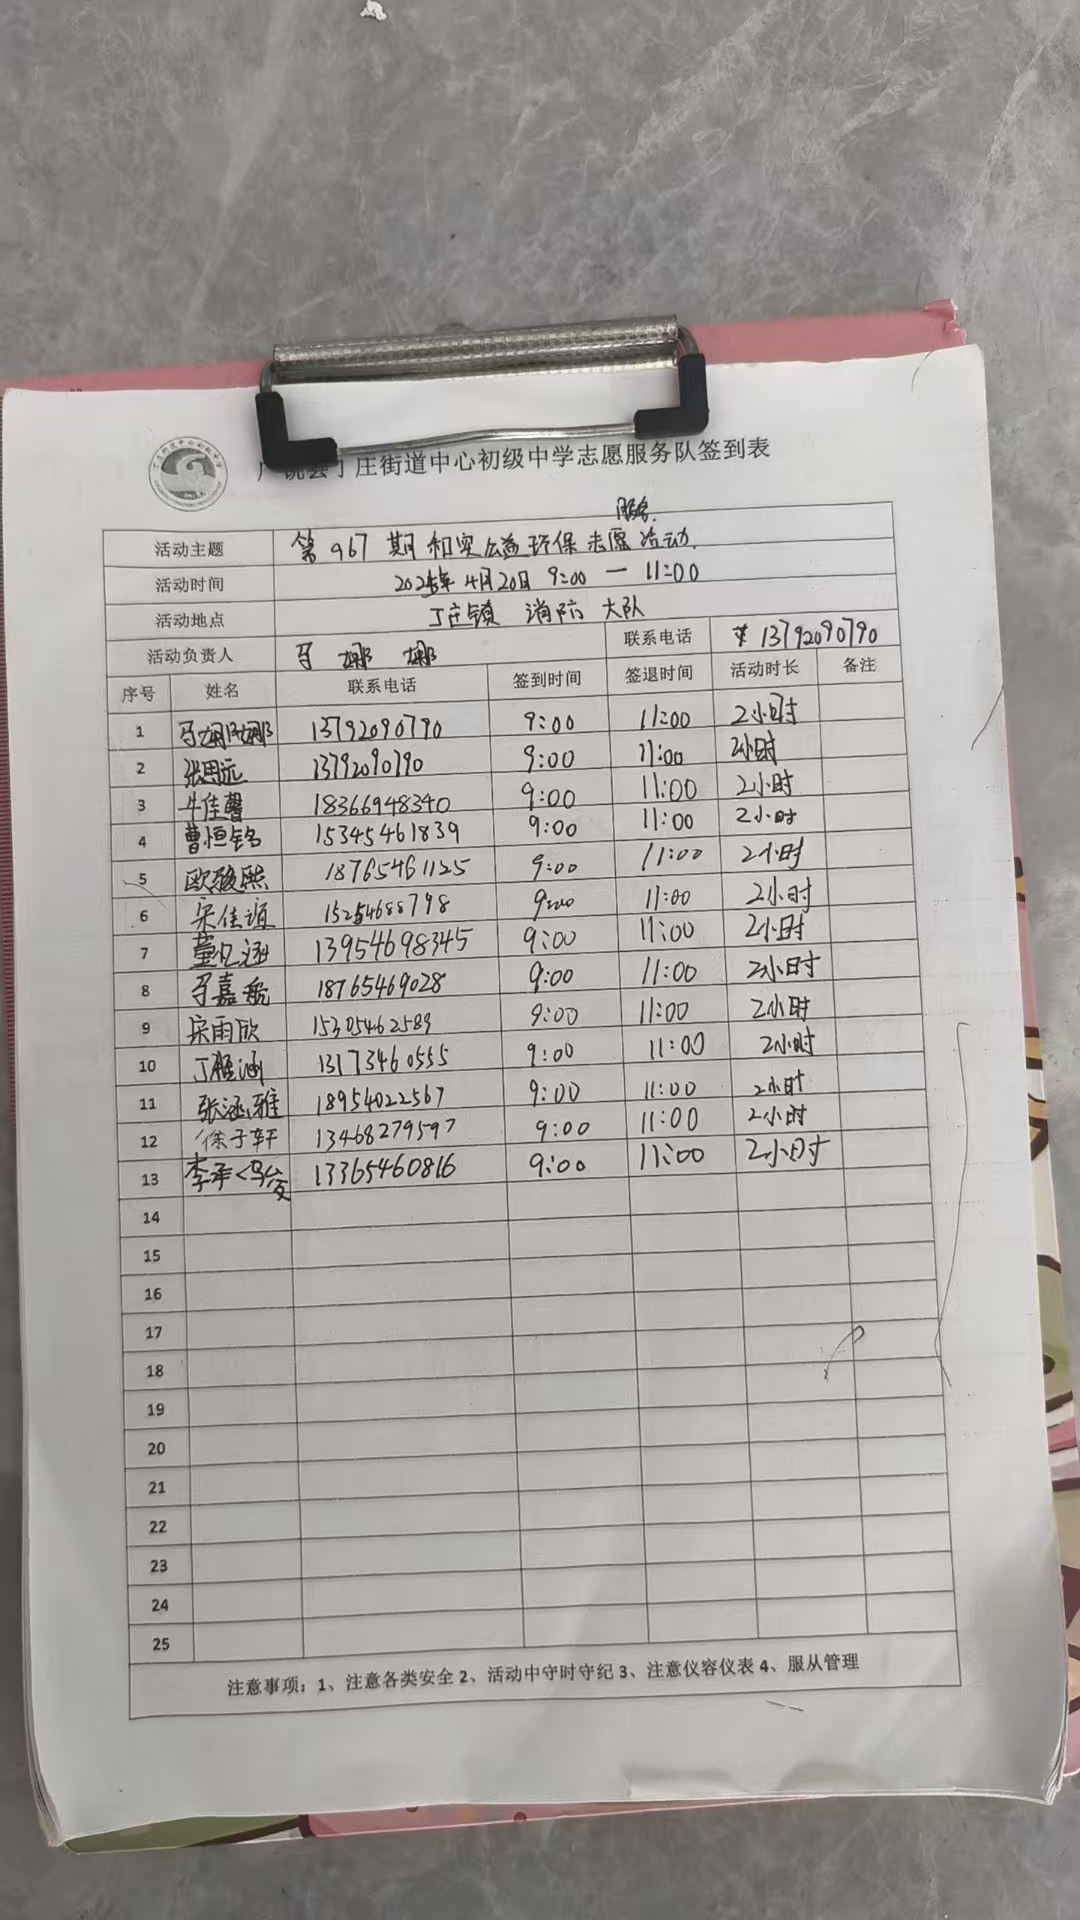 广饶县丁庄街道中心初级中学志愿服务队签到表
服务
活动主题 第967期和实公益环保志愿活动.
活动时间 2025年4月20日 9:00 — 11:00
活动地点 丁庄镇 消防 大队
活动负责人 马娜娜 联系电话 13792090790
序号 姓名 联系电话 签到时间 签退时间 活动时长 备注
1 马娜娜 13792090790 9:00 11:00 2小时
2 张思远 13792090790 9:00 11:00 2小时
3 牛佳馨 18366948340 9:00 11:00 2小时
4 曹恒铭 15345461839 9:00 11:00 2小时
5 欧骏熙 18765461125 9:00 11:00 2小时
6 宋佳谊 15254688798 9:00 11:00 2小时
7 董凡涵 13954698345 9:00 11:00 2小时
8 马嘉航 18765469028 9:00 11:00 2小时
9 宋雨欣 15305462589 9:00 11:00 2小时
10 丁雅涵 13173460555 9:00 11:00 2小时
11 张涵雅 18954022567 9:00 11:00 2小时
12 徐子轩 13468279597 9:00 11:00 2小时
13 李承骏 13365460816 9:00 11:00 2小时
14
15
16
17
18
19
20
21
22
23
24
25
注意事项：1、注意各类安全 2、活动中守时守纪 3、注意仪容仪表 4、服从管理